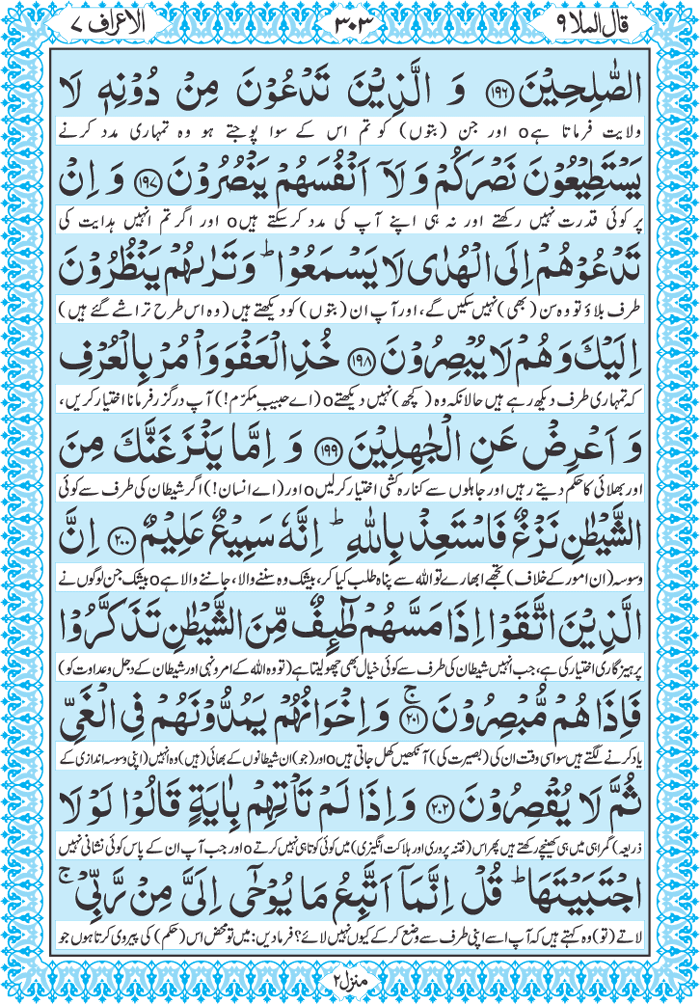 قال الملا ٩ ٣٠٣ الاعراف ٧
الصّٰلِحِيْنَ ﴿۱۹۶﴾ وَ الَّذِيْنَ تَدْعُوْنَ مِنْ دُوْنِهٖ لَا
ولایت فرماتا ہے o اور جن (بتوں) کو تم اس کے سوا پوجتے ہو وہ تمہاری مدد کرنے
يَسْتَطِيْعُوْنَ نَصْرَكُمْ وَ لَاۤ اَنْفُسَهُمْ يَنْصُرُوْنَ ﴿۱۹۷﴾ وَ اِنْ
پر کوئی قدرت نہیں رکھتے اور نہ ہی اپنے آپ کی مدد کرسکتے ہیں o اور اگر تم انہیں ہدایت کی
تَدْعُوْهُمْ اِلَى الْهُدٰى لَا يَسْمَعُوْا ؕ وَ تَرٰىهُمْ يَنْظُرُوْنَ
طرف بلاؤ تو وہ سن (بھی) نہیں سکیں گے، اور آپ ان (بتوں) کو دیکھتے ہیں (وہ اس طرح تراشے گئے ہیں)
اِلَيْكَ وَ هُمْ لَا يُبْصِرُوْنَ ﴿۱۹۸﴾ خُذِ الْعَفْوَ وَ اْمُرْ بِالْعُرْفِ
کہ تمہاری طرف دیکھ رہے ہیں حالانکہ وہ (کچھ) نہیں دیکھتے o (اے حبیبِ مکرّم!) آپ درگزر فرمانا اختیار کریں،
وَ اَعْرِضْ عَنِ الْجٰهِلِيْنَ ﴿۱۹۹﴾ وَ اِمَّا يَنْزَغَنَّكَ مِنَ
اور بھلائی کا حکم دیتے رہیں اور جاہلوں سے کنارہ کشی اختیار کرلیں o اور (اے انسان!) اگر شیطان کی طرف سے کوئی
الشَّيْطٰنِ نَزْغٌ فَاسْتَعِذْ بِاللّٰهِ ؕ اِنَّهٗ سَمِيْعٌ عَلِيْمٌ ﴿۲۰۰﴾ اِنَّ
وسوسہ (ان امور کے خلاف) تجھے ابھارے تو اللہ سے پناہ طلب کیا کر، بیشک وہ سننے والا، جاننے والا ہے o بیشک جن لوگوں نے
الَّذِيْنَ اتَّقَوْا اِذَا مَسَّهُمْ طٰٓىِٕفٌ مِّنَ الشَّيْطٰنِ تَذَكَّرُوْا
پرہیزگاری اختیار کی ہے، جب انہیں شیطان کی طرف سے کوئی خیال بھی چھو لیتا ہے (تو وہ اللہ کے امر و نہی اور شیطان کے دجل و عداوت کو)
فَاِذَا هُمْ مُّبْصِرُوْنَ ﴿۲۰۱﴾ ۚ وَ اِخْوَانُهُمْ يَمُدُّوْنَهُمْ فِي الْغَيِّ
یاد کرنے لگتے ہیں سو اسی وقت ان کی (بصیرت کی) آنکھیں کھل جاتی ہیں o اور (جو) ان شیطانوں کے بھائی (ہیں) وہ انہیں (اپنی وسوسہ اندازی کے
ثُمَّ لَا يُقْصِرُوْنَ ﴿۲۰۲﴾ وَ اِذَا لَمْ تَاْتِهِمْ بِاٰيَةٍ قَالُوْا لَوْ لَا
ذریعہ) گمراہی میں ہی کھینچے رکھتے ہیں پھر اس (فتنہ پروری اور ہلاکت انگیزی) میں کوئی کوتاہی نہیں کرتے o اور جب آپ ان کے پاس کوئی نشانی نہیں
اجْتَبَيْتَهَا ؕ قُلْ اِنَّمَاۤ اَتَّبِعُ مَا يُوْحٰۤى اِلَيَّ مِنْ رَّبِّيْ ۚ
لاتے (تو) وہ کہتے ہیں کہ آپ اسے اپنی طرف سے وضع کر کے کیوں نہیں لائے؟ فرما دیں: میں تو محض اس (حکم) کی پیروی کرتا ہوں جو
منزل ۲